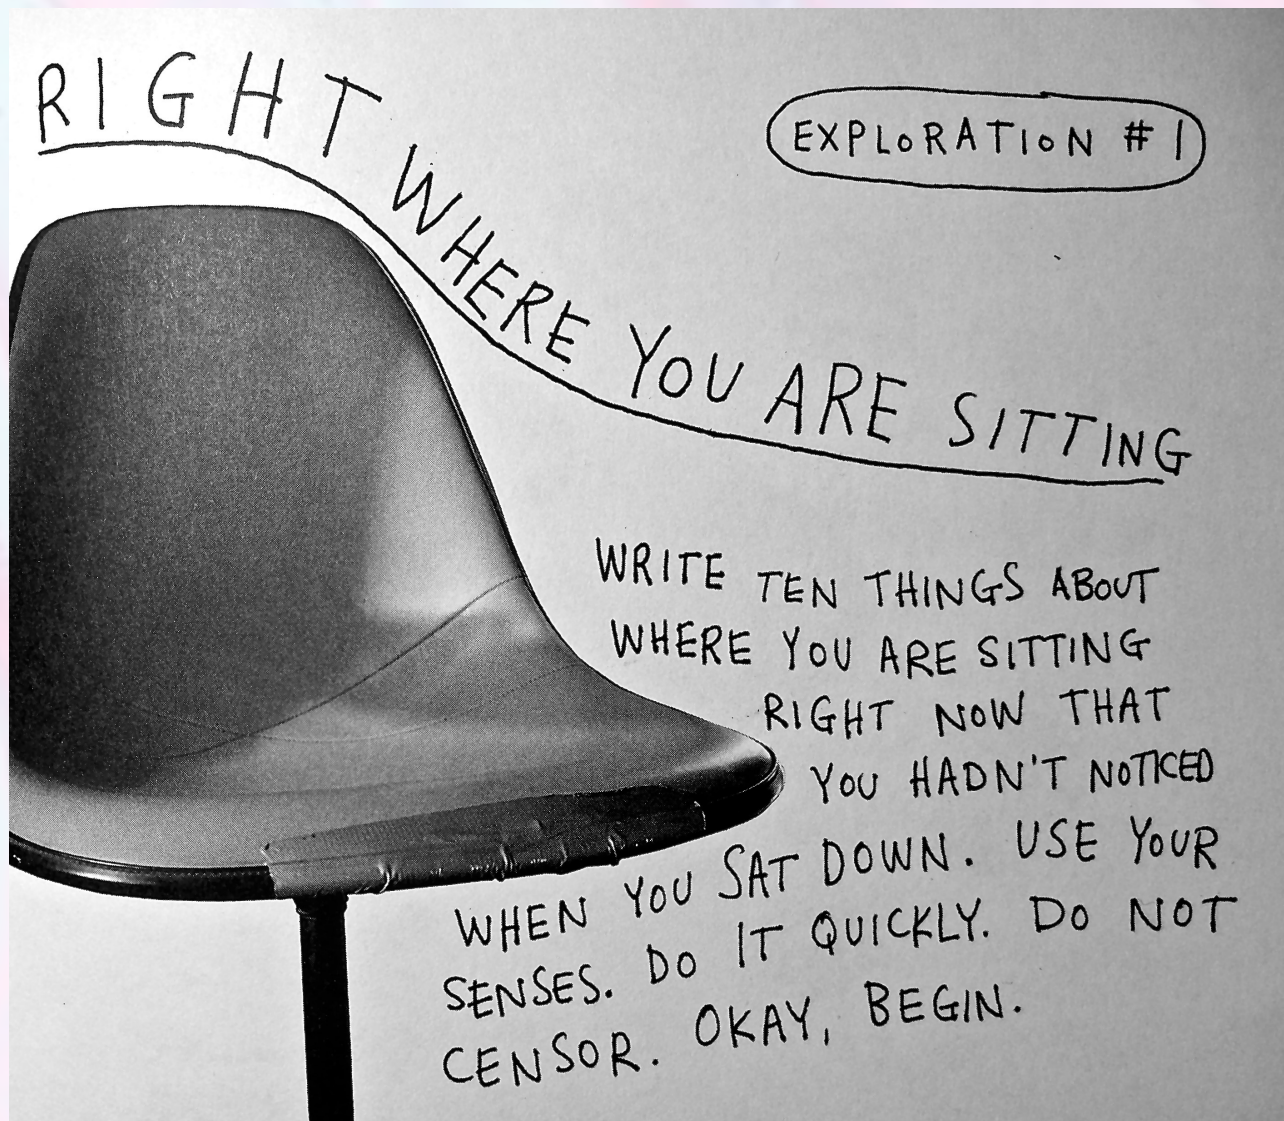 RIGHT WHERE YOU ARE SITTING
EXPLORATION #1
WRITE TEN THINGS ABOUT
WHERE YOU ARE SITTING
RIGHT NOW THAT
YOU HADN'T NOTICED
WHEN YOU SAT DOWN. USE YOUR
SENSES. DO IT QUICKLY. DO NOT
CENSOR. OKAY, BEGIN.